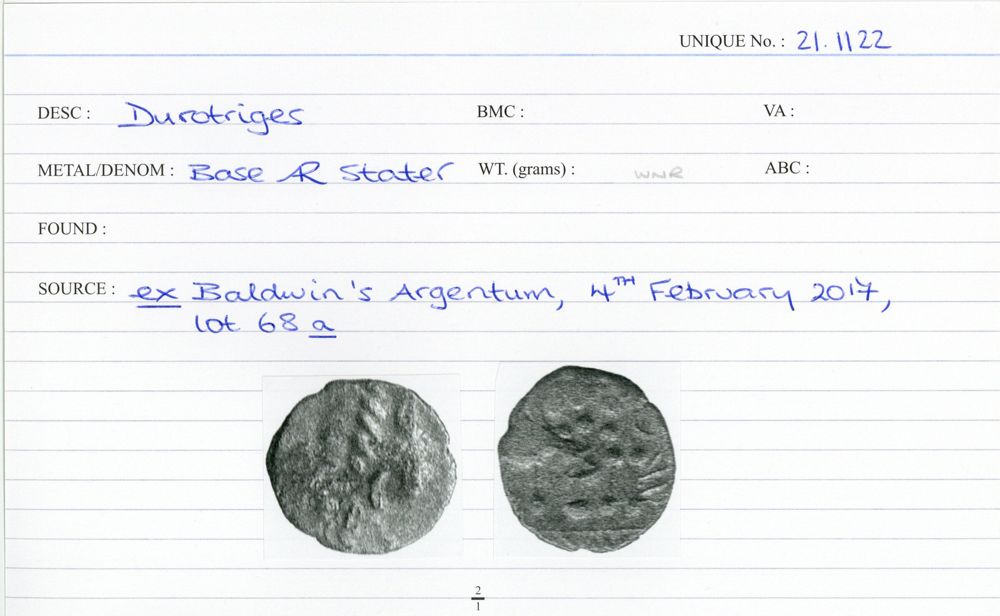 UNIQUE No. : 21.1122
DESC : Durotriges BMC : VA :
METAL/DENOM : Base AR Stater WT. (grams) : WNR ABC :
FOUND :
SOURCE : ex Baldwin's Argentum, 4TH February 2017,
lot 68 a
2
1